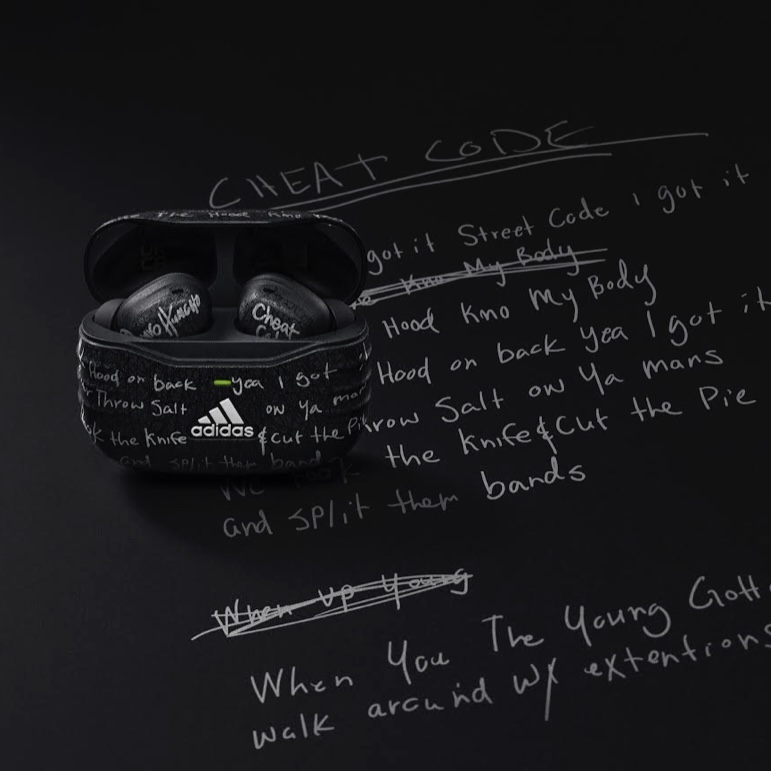 CHEAT CODE
got it Street Code I got it
Kno My Body
Hood Kno My Body
Hood on back yea I got it
row Salt on Ya mans
the Knife & Cut the Pie
We
and split them bands
When Up Young
When You The Young Gott
walk around w/ extentions
The Hood Kno
Cheat
Hood on back yea I got
Throw Salt on Ya man
k the Knife & Cut the Pi
adidas
and split them band